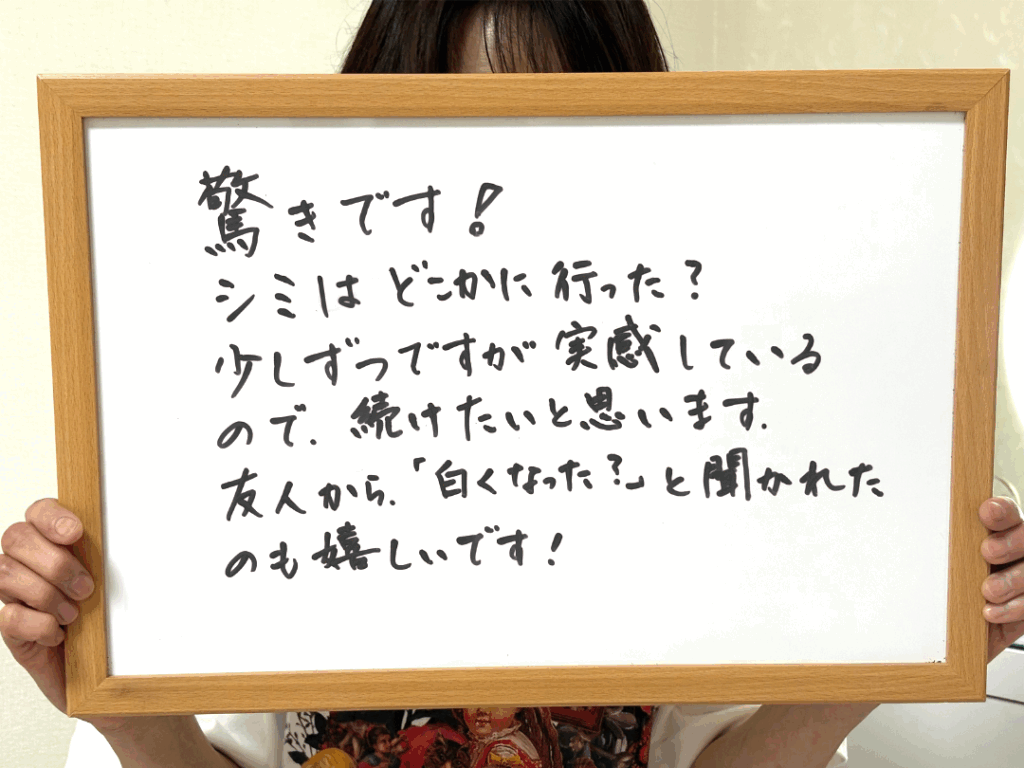 驚きです!
シミはどこかに行った?
少しずつですが実感している
ので、続けたいと思います。
友人から、「白くなった?」と聞かれた
のも嬉しいです!